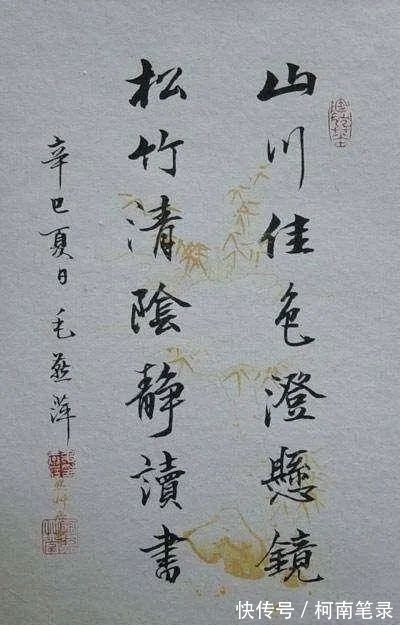 山川佳色澄懸鏡
松竹清陰静讀書
辛巳夏日毛燕萍
快传号／柯南笔录